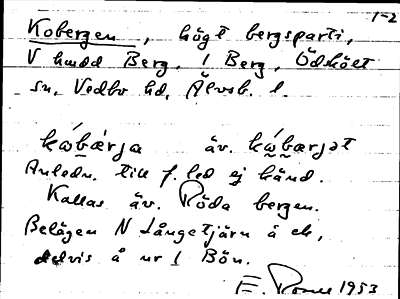 1-2
Kobergen, högt bergsparti,
V hmdd Berg, 1 Berg, Ödskölt
sn, Vedbo hd, Älvsb. l.
kὼbæ̀rja äv. kώbærjət
Anledn. till f. led ej känd.
Kallas äv. Röda bergen.
Belägen N Långetjärn å ek,
delvis å nr 1 Bön.
E. 1953